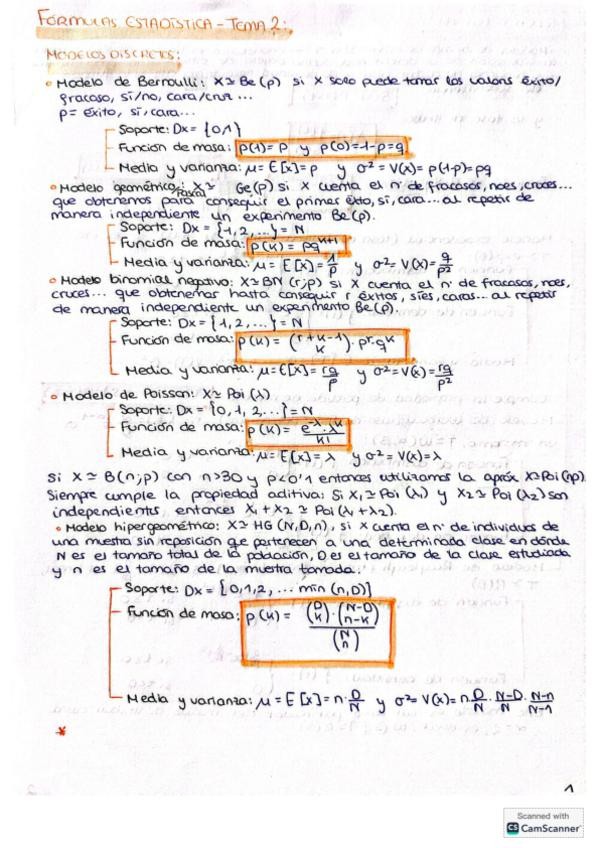 FÓRMULAS ESTADÍSTICA - TEMA 2:
MODELOS DISCRETOS:
• Modelo de Bernoulli: X≃Be(p) si X solo puede tomar los valores éxito/
fracaso, sí/no, cara/cruz...
p= éxito, sí, cara...
Soporte: Dx = {0,1}
Función de masa: p(1)=p y p(0)=1-p=q
Media y varianza: μ=E[X]=p y σ²=V(X)=p(1-p)=pq
• Modelo geométrico: X≃ Ge(p) si X cuenta el nº de fracasos, noes, cruces...
que obtenemos para conseguir el primer éxito, sí, cara... al repetir de
manera independiente un experimento Be(p).
Soporte: Dx = {1,2,...} = N
Función de masa: p(k) = pq^(k+1)
Media y varianza: μ=E[X]=1/p y σ²=V(X)=q/p²
• Modelo binomial negativo: X≃BN (r;p) si X cuenta el nº de fracasos, noes,
cruces... que obtenemos hasta conseguir r éxitos, síes, caras... al repetir
de manera independiente un experimento Be(p).
Soporte: Dx = {1,2,...} = N
Función de masa: p(k) = (r+k-1 k)·p^r·q^k
Media y varianza: μ=E[X]=rq/p y σ²=V(X)=rq/p²
• Modelo de Poisson: X≃Poi(λ)
Soporte: Dx = {0,1,2...} = N
Función de masa: p(k) = e^-λ·λ^k/k!
Media y varianza: μ=E[X]=λ y σ²=V(X)=λ
Si X≃ B(n;p) con n>30 y p<0'1 entonces utilizamos la aprox X≃Poi(np).
Siempre cumple la propiedad aditiva: Si X₁≃Poi(λ) y X₂≃Poi(λ₂) son
independientes, entonces X₁+X₂≃Poi(λ+λ₂).
• Modelo hipergeométrico: X≃HG (N,D,n), si X cuenta el nº de individuos de
una muestra sin reposición que pertenecen a una determinada clase en dónde
N es el tamaño total de la población, D es el tamaño de la clase estudiada
y n es el tamaño de la muestra tomada.
Soporte: Dx = [0,1,2,... mín (n,D)]
Función de masa: p(k) = (D k)·(N-D n-k)/(N n)
Media y varianza: μ=E[X]=n·D/N y σ²=V(X)=n·D/N·N-D/N·N-n/N-1
*
1
Scanned with
CS CamScanner